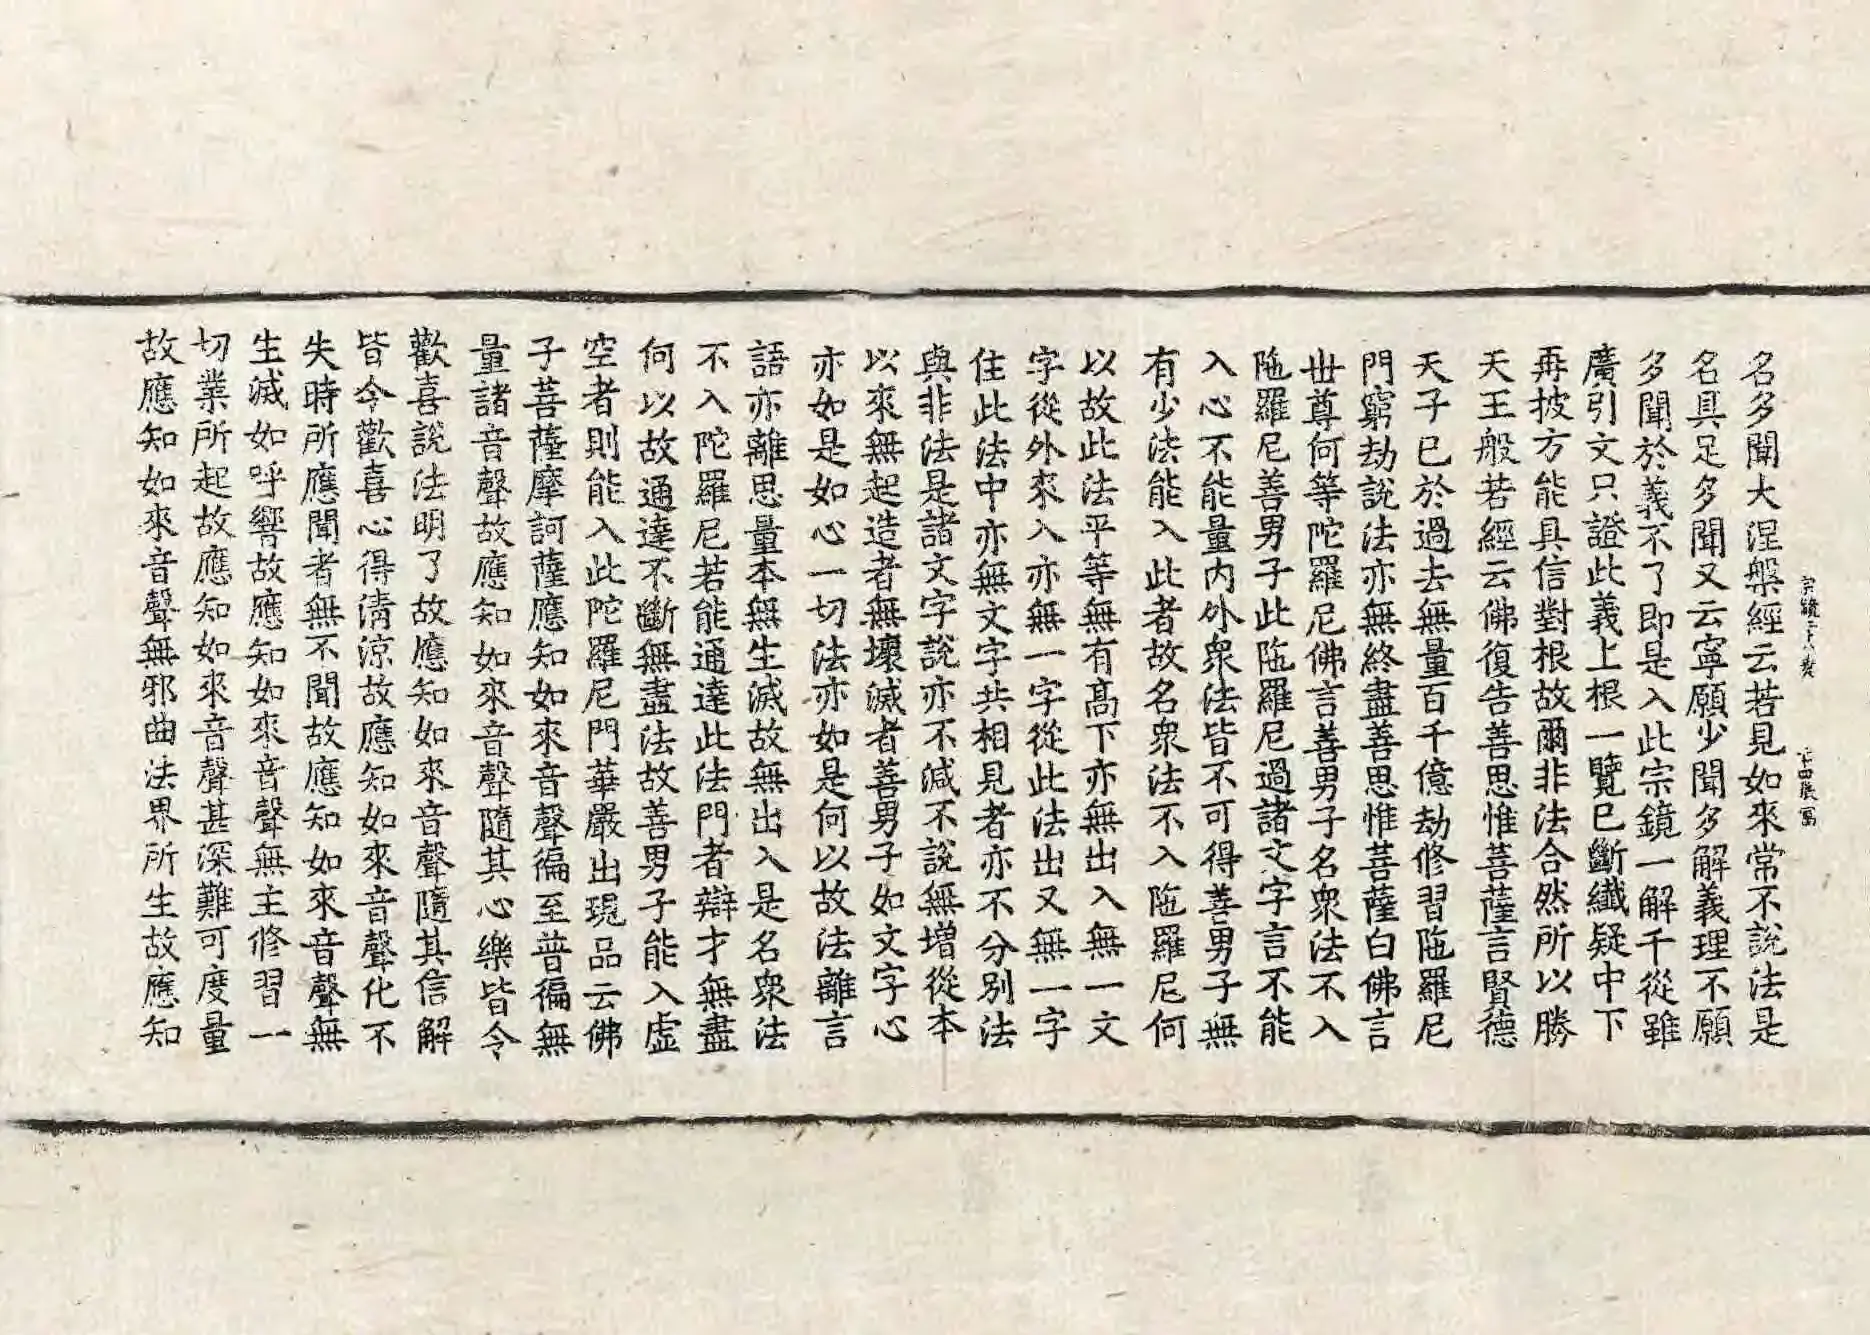 名多聞大涅槃經云若見如來常不說法是
名具足多聞又云寧願少聞多解義理不願
多聞於義不了即是入此宗鏡一解千從雖
廣引文只證此義上根一覽已斷纖疑中下
再披方能具信對根故爾非法合然所以勝
天王般若經云佛復告善思惟菩薩言賢德
天子已於過去無量百千億劫修習陁羅尼
門窮劫說法亦無終盡善思惟菩薩白佛言
世尊何等陀羅尼佛言善男子名衆法不入
陁羅尼善男子此陁羅尼過諸文字言不能
入心不能量內外衆法皆不可得善男子無
有少法能入此者故名衆法不入陁羅尼何
以故此法平等無有高下亦無出入無一文
字從外來入亦無一字從此法出又無一字
住此法中亦無文字共相見者亦不分別法
與非法是諸文字說亦不減不說無增從本
以來無起造者無壞滅者善男子如文字心
亦如是如心一切法亦如是何以故法離言
語亦離思量本無生滅故無出入是名衆法
不入陀羅尼若能通達此法門者辯才無盡
何以故通達不斷無盡法故善男子能入虛
空者則能入此陀羅尼門華嚴出現品云佛
子菩薩摩訶薩應知如來音聲徧至普徧無
量諸音聲故應知如來音聲隨其心樂皆令
歡喜說法明了故應知如來音聲隨其信解
皆令歡喜心得清涼故應知如來音聲化不
失時所應聞者無不聞故應知如來音聲無
生滅如呼響故應知如來音聲無主修習一
切業所起故應知如來音聲甚深難可度量
故應知如來音聲無邪曲法界所生故應知